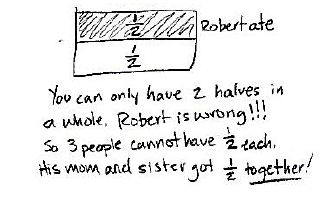 1/2 Robert ate
1/2
You can only have 2 halves in
a whole. Robert is wrong!!!
So 3 people cannot have 1/2 each.
His mom and sister got 1/2 together!